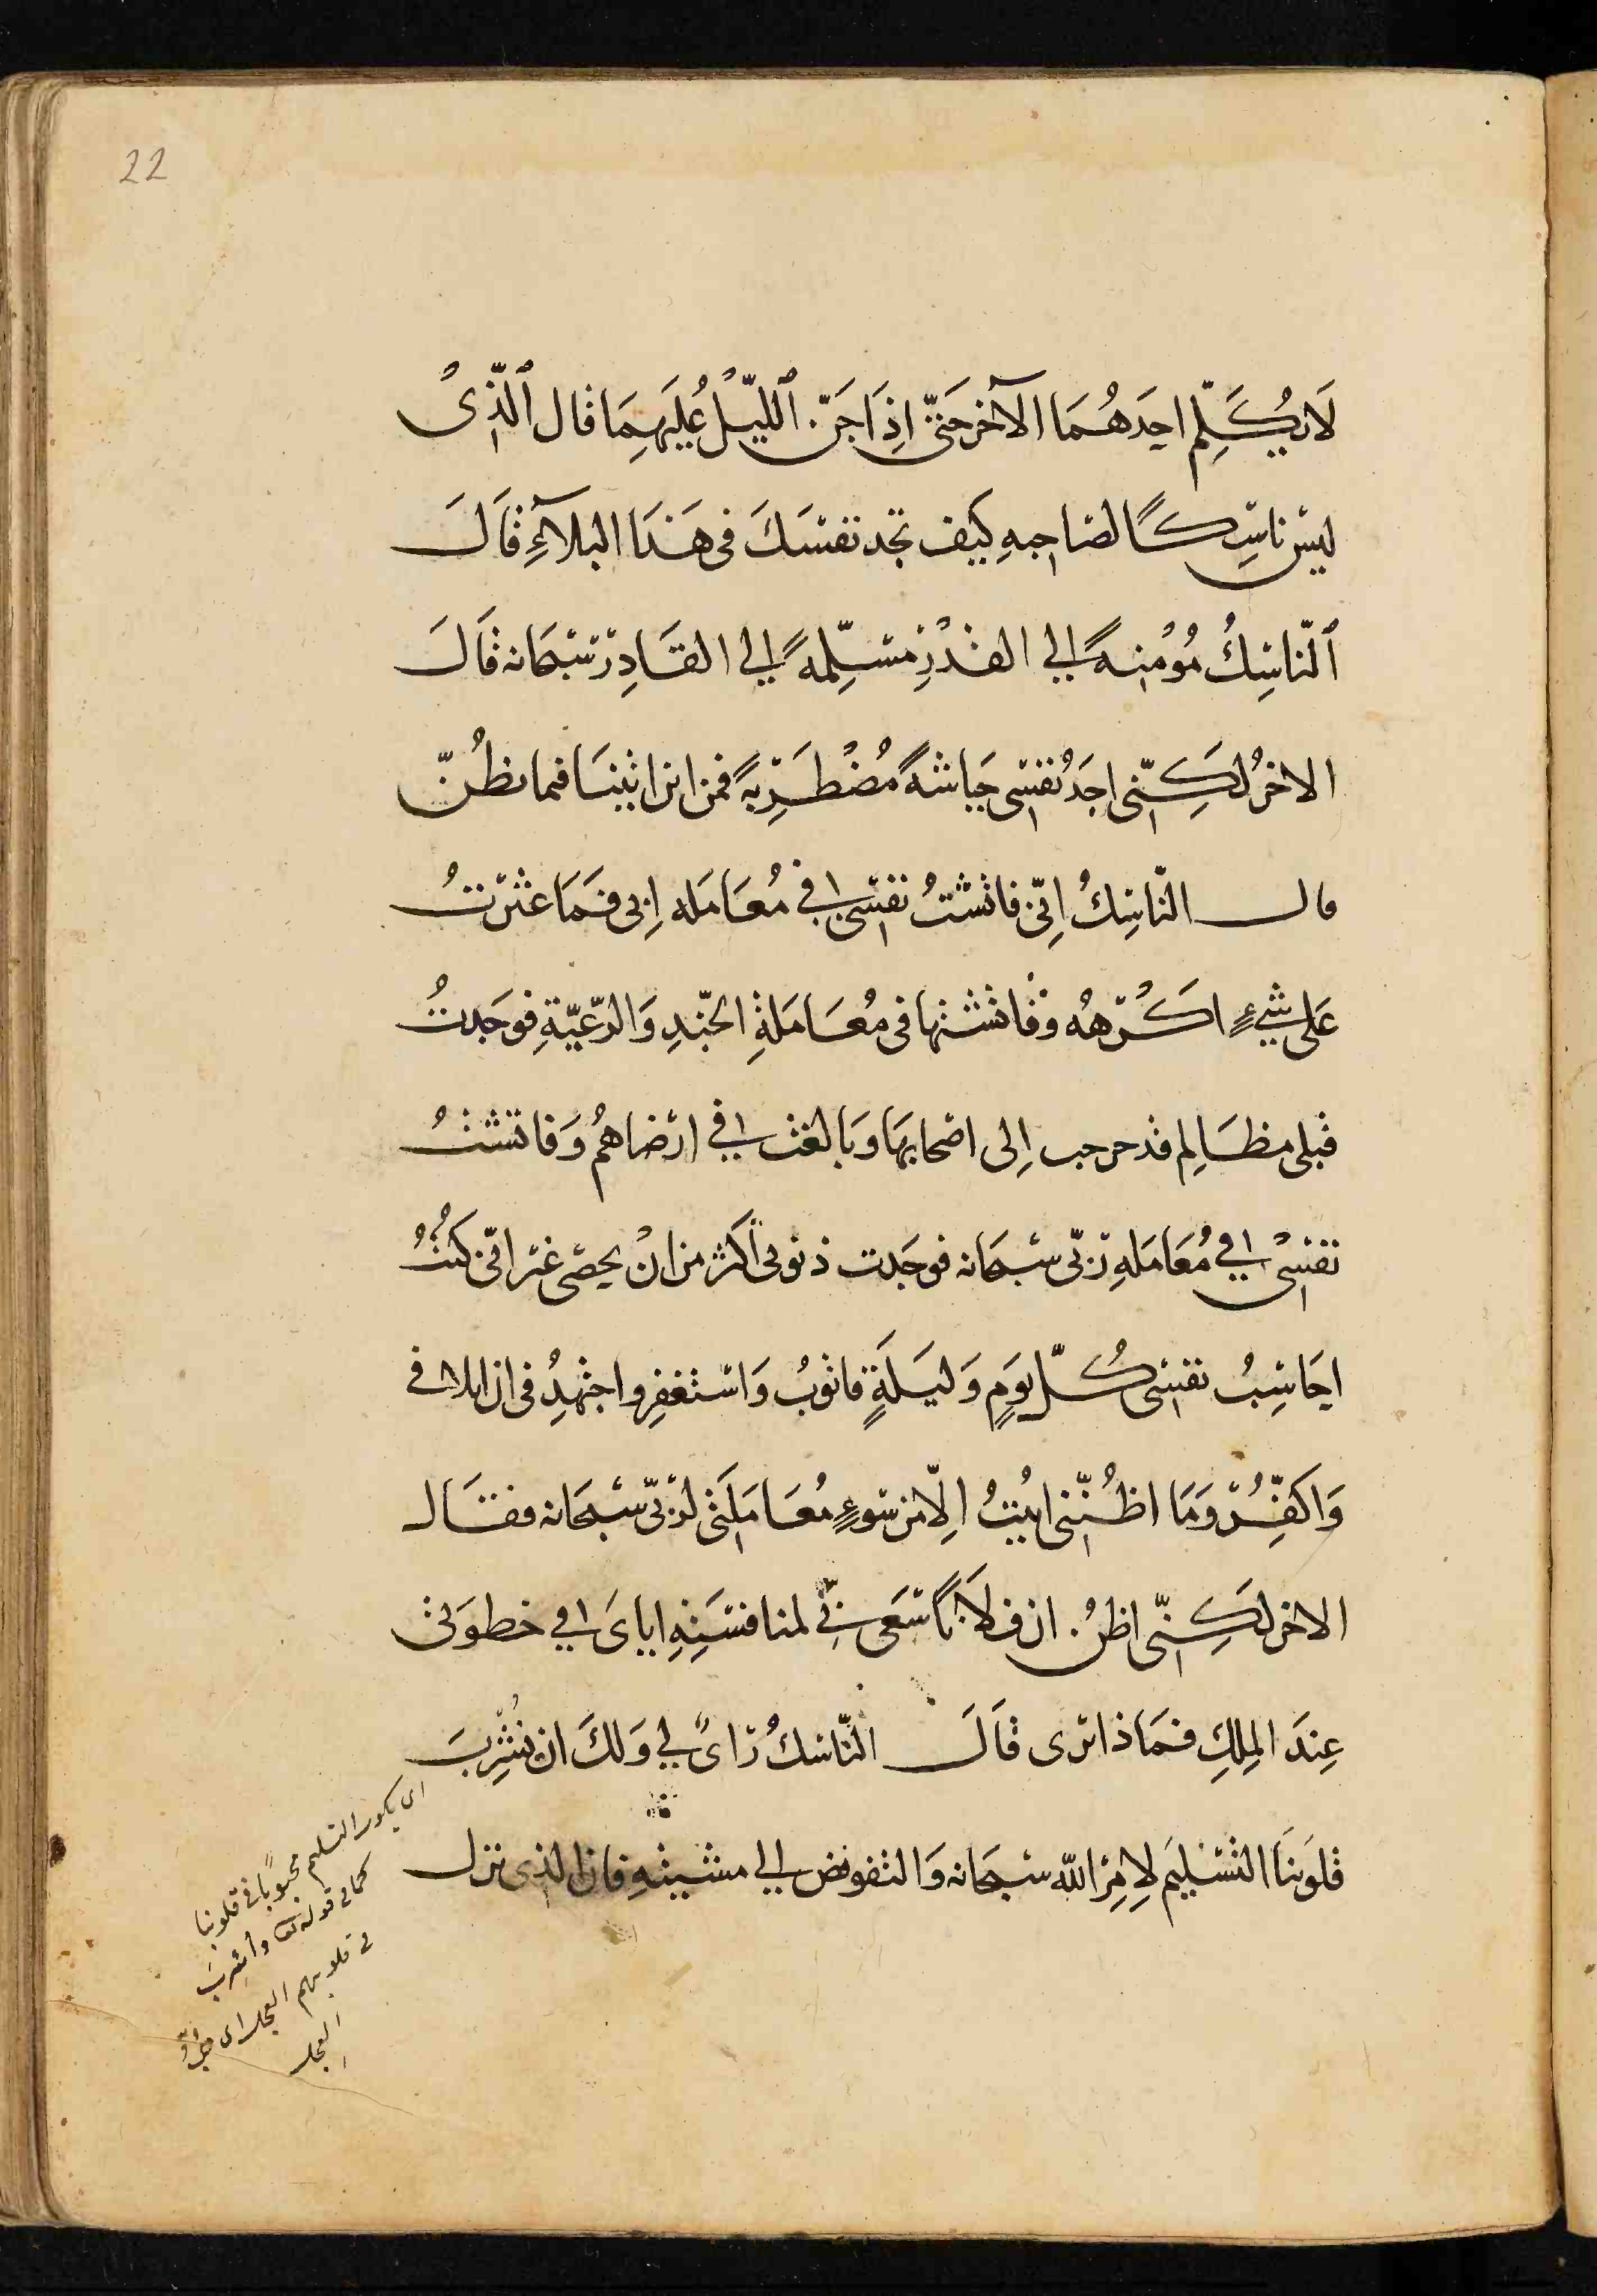 22
لَا يُكَلِّم احَدهُمَا الآخر حَتّى اِذَا جَنّ الليّلُ عَليَهِمَا قال الّذِىْ
ليسَ ناسِكًا لصَاحِبهِ كيَف تجد نفسَكَ فى هَذَا البلآءِ قَالَ
النّاسِكُ مُومُنِهً الى القدْرِ مسَلِّمهً الى القَادِر سُبحَانه قَالَ
الاخرُ لكَنِّى اجَدُ نفسِى جَاشهً مُضْطَرِبهً فمن اىن اىىنَا فما تظُنّ
قال النّاسِكُ اِنّى فاتشتُ نفسِى فى مُعَامَله اِبى فَمَا عثرَتُ
عَلى شىءٍ اكْرَهُه وَفَاتشتها فى مُعَامَلةِ الجُندِ وَالرّعيّةِ فوَجَدتُ
قبلى مظَالِم قد خرجت اِلى اصحَابهَا وَبَالغت فى ارضاهُم وَفَاتشتُ
نفسِىْ فى مُعَامَلهِ رَبّى سُبحَانه فوجَدت ذنوبى اكثر من انْ يحصَى غير انّى كنُتُ
احَاسِبُ نفسِى كُلّ يوَمٍ وَليَلَةٍ فاتوبُ وَاسْتغفِر واجتهِدُ فى ان اتلافى
وَاكَفِّرُ وَمَا اظُنّنِى اىُىتُ اِلّا من سُوءِ مُعَامَلَتِى لرَبّى سُبحَانه فقَال
الاخر لكِنّى اظنُ ان فلَانًا سَعَى بىّ لمنافسَتِهِ اياىَ فى حطوَتى
عِندَ الملِكِ فمَاذا ترى قَالَ النّاسكُ رَاىً لى وَلكَ ان نُشْرِبَ
قلوَبنَا التسْليَم لِامِر اللّه سُبحَانه وَالتفويض الى مشيئتهِ فان الذى نزل
اى يكون التسليم محبوبًا فى قلوبنا
كما فى قوله تعا وأشربَ
فى قلوبهم العجل اى حبّ
العجل